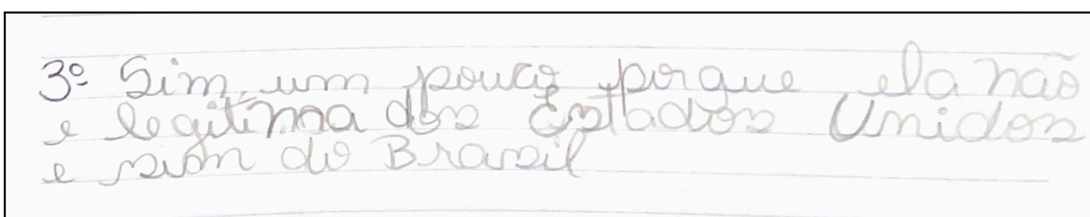 3º Sim, um pouco porque ela não
e legitima dos Estados Unidos
e sim do Brasil